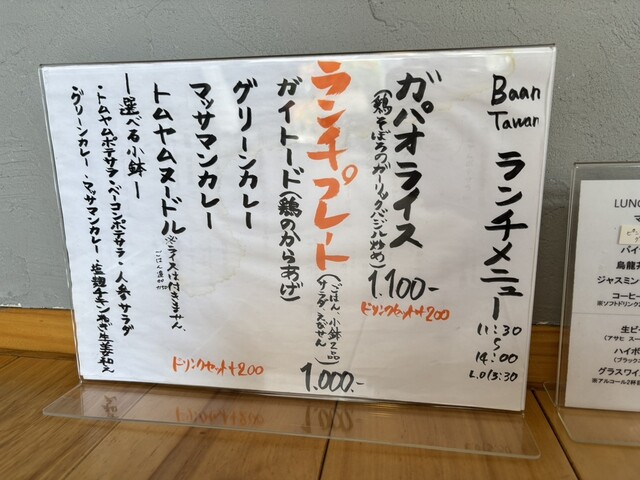 Baan
Tawan
ランチメニュー
11:30
〜
14:00
L.O 13:30
ガパオライス
(鶏そぼろのガーリックバジル炒め)
1.100-
ドリンクセット+200
ランチプレート
(ごはん、小鉢2品
サラダ、えびせん)
1.000.-
ガイトード(鶏のからあげ)
グリーンカレー
マッサマンカレー
トムヤムヌードル
※ライスは付きません。
ドリンクセット+200
ー選べる小鉢ー
・トムヤムポテサラ・ベーコンポテサラ・人参サラダ
・グリーンカレー・マッサマンカレー・塩麹チキンねぎ生姜和え
LUNC
パイ
烏龍茶
ジャスミン
コーヒー
※ソフトドリンク
生ビ
(アサヒ スー
ハイボ
(ブラック
グラスワイ
※アルコール2杯